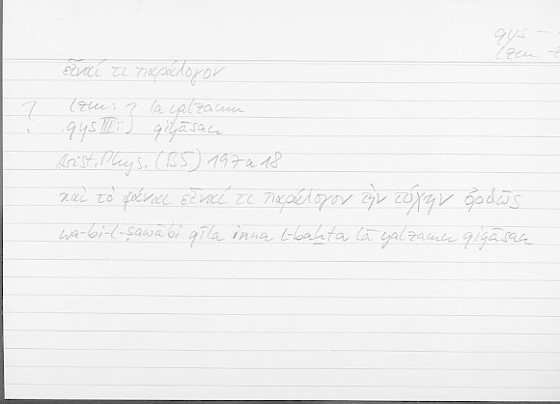 qys
lzm
εἶναί τι παράλογον
? lzm: } lā yalzamu
qys III: } qiyāsan
Arist. Phys. (B5) 197a18
καὶ τὸ φάναι εἶναί τι παράλογον τὴν τύχην ὀρθῶς
wa-bi-l-ṣawābi qīla inna l-baḫta lā yalzamu qiyāsan